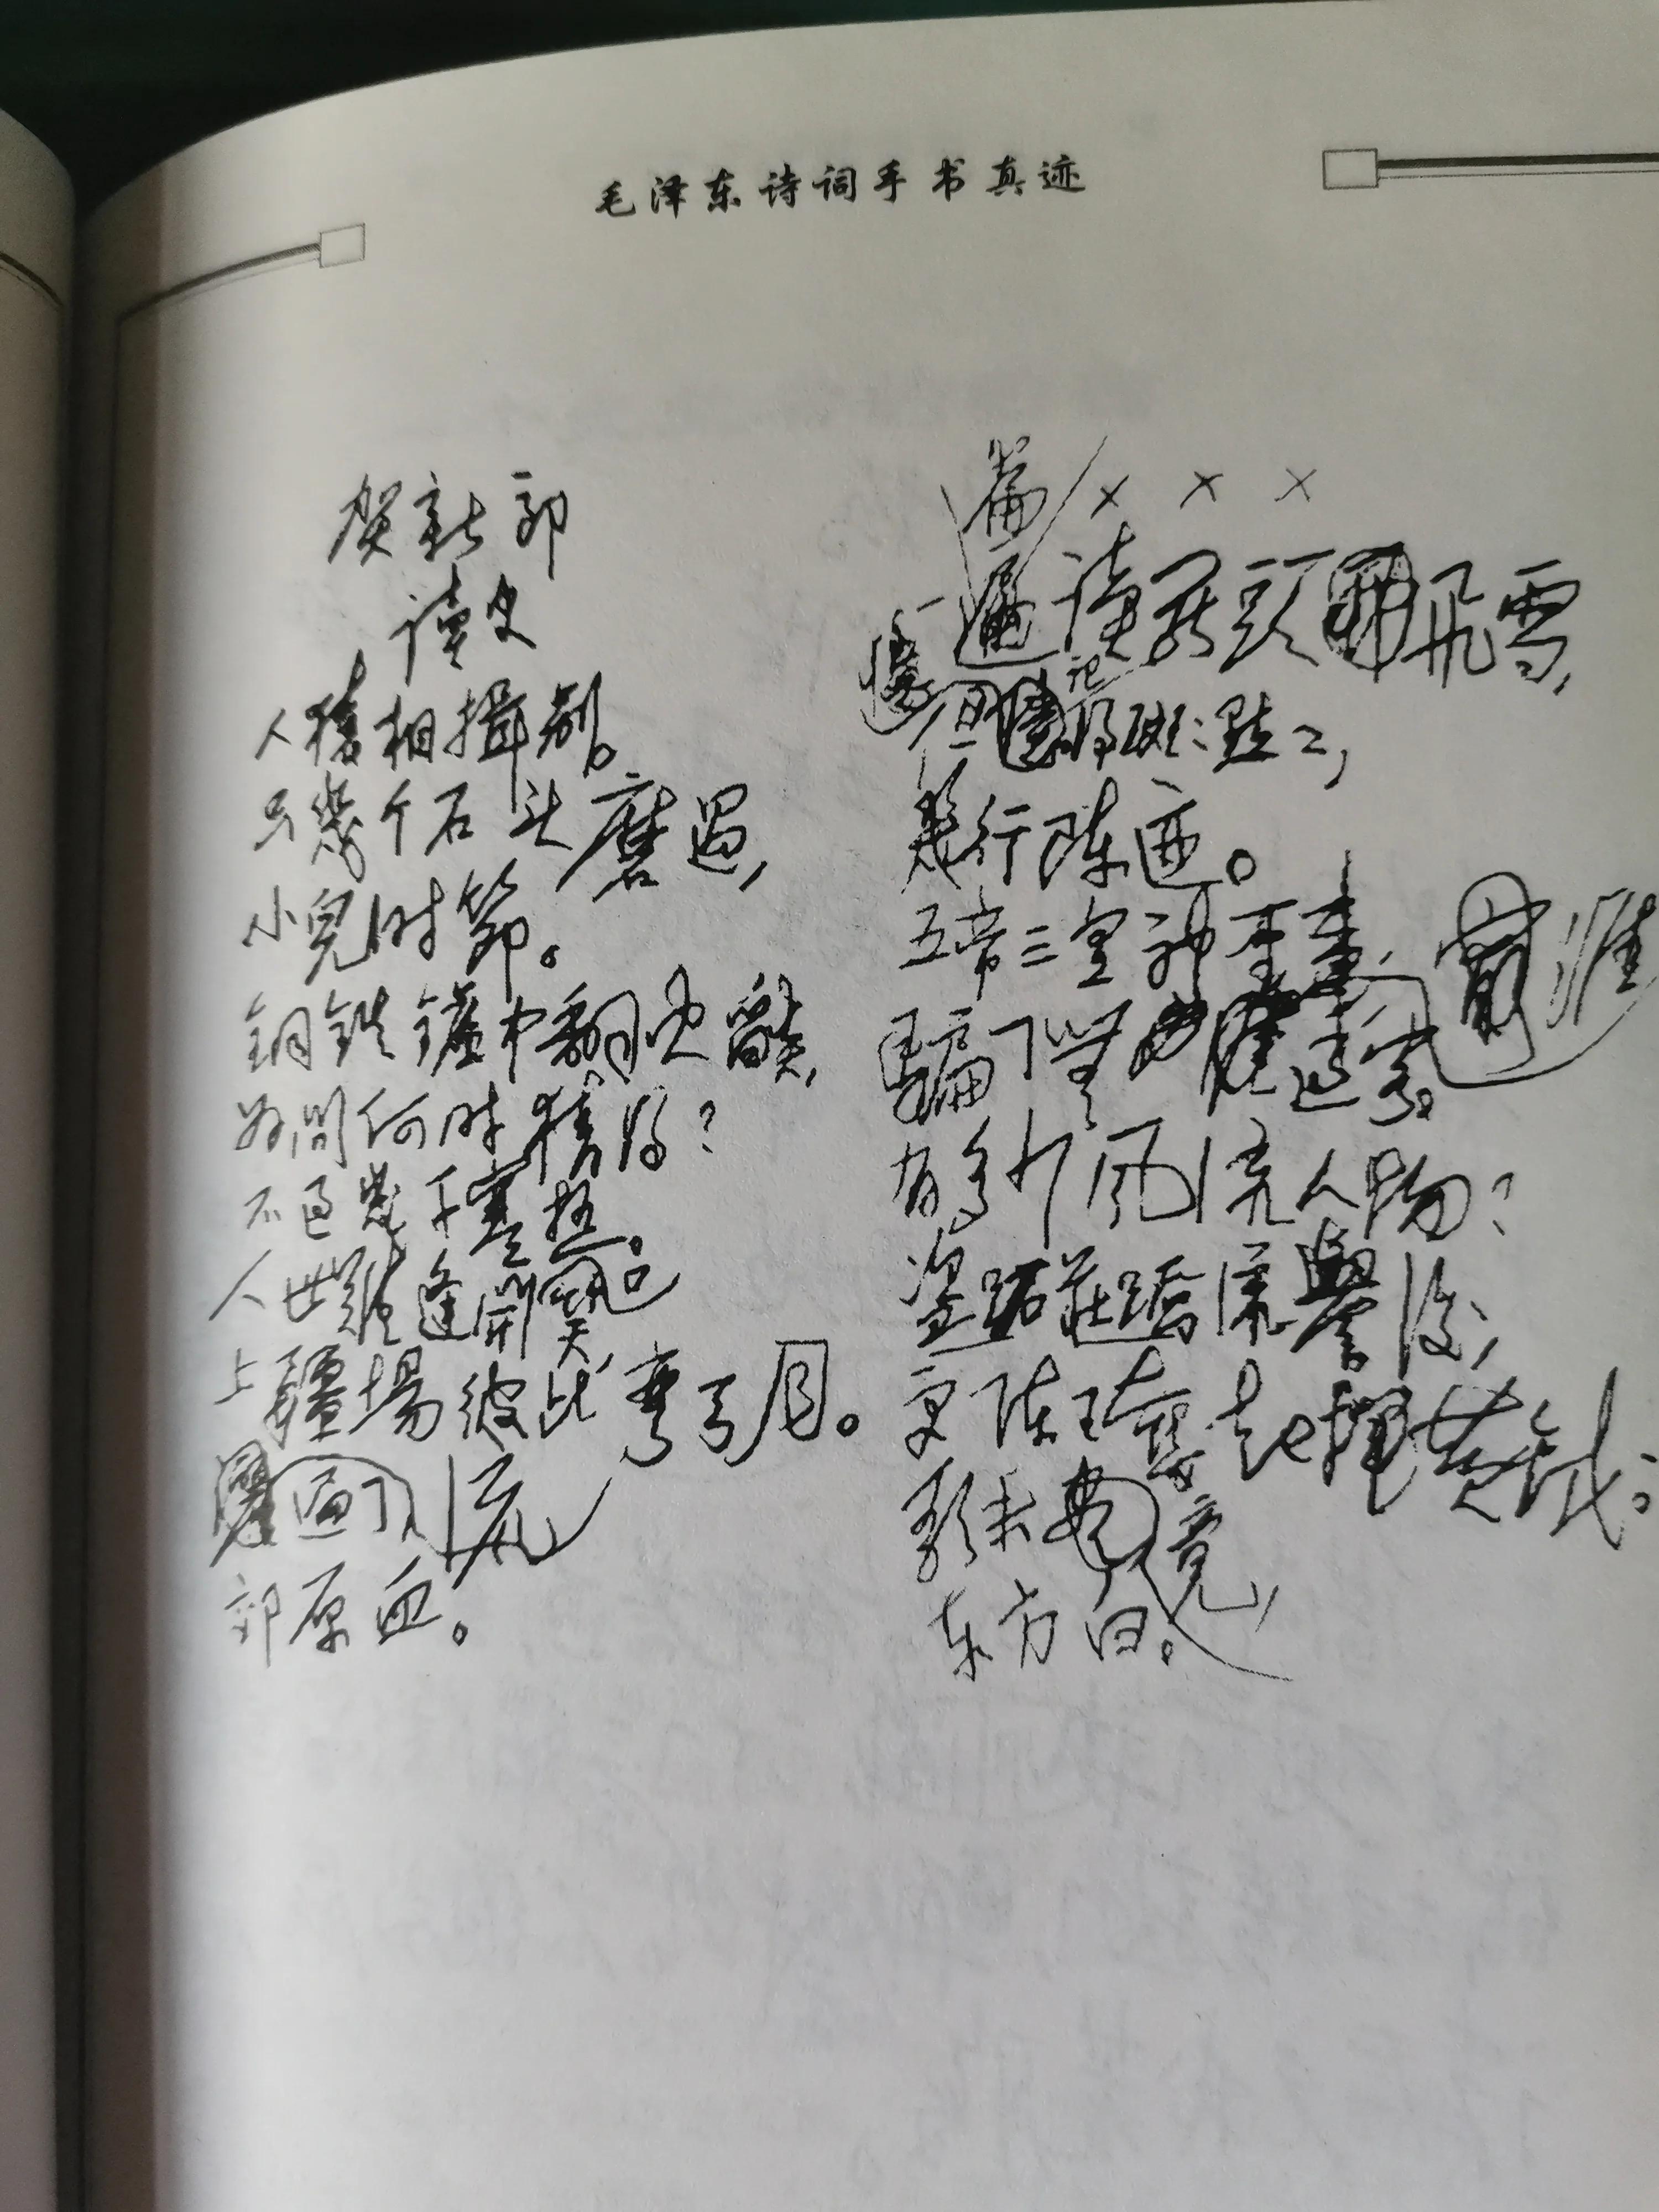 毛泽东诗词手书真迹
贺新郎
读史
人猿相揖别。
只幾个石头磨过,
小兒时節。
铜鉄鑪中翻火焰,
为问何时猜得?
不过幾千寒热。
人世難逢開笑口
上疆場彼此弯弓月。
过了流
郊原血。
篇
× × ×
一遍读罢頭飛雪,
但記得斑:點:,
幾行陈迹。
五帝三皇神聖事,
騙了無过客。涯
有多少风流人物?
盗跖莊蹻流譽後,
更陈王奋起揮黄钺。
歌未竟,
东方白。